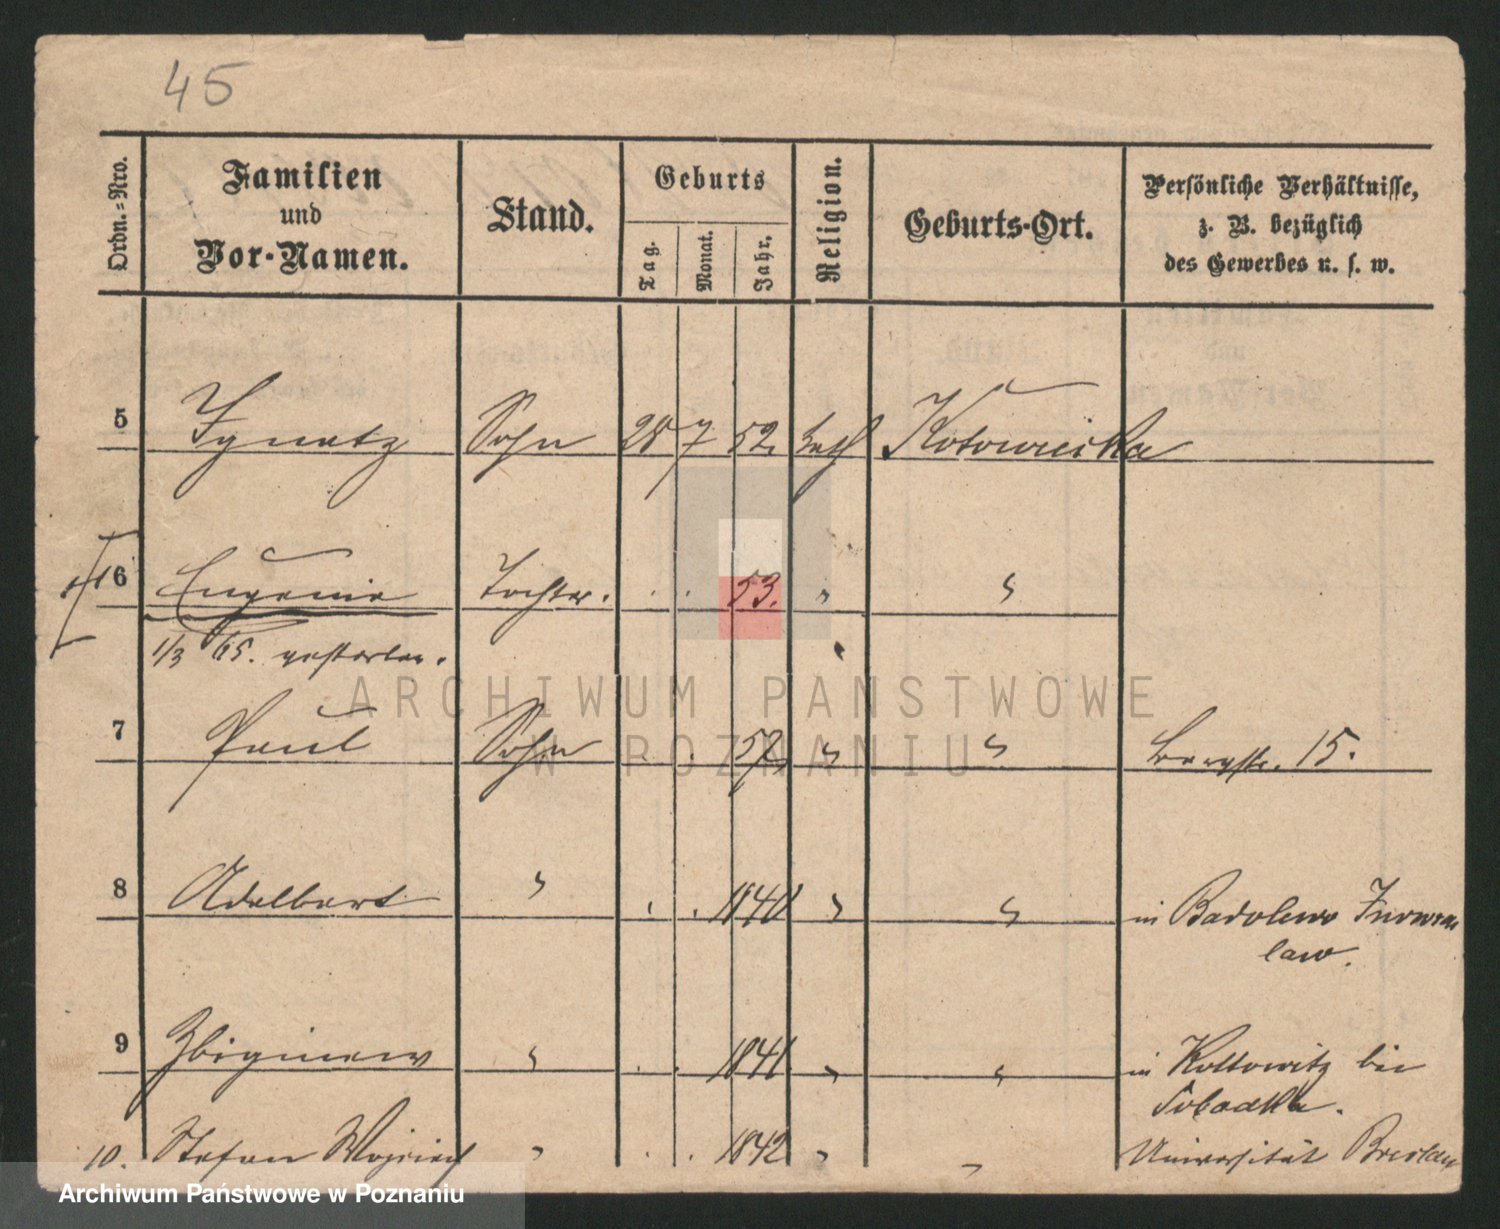 45
Ordn.-Nro.
Familien
und
Vor-Namen.
Stand.
Geburts
Tag.
Monat.
Jahr.
Religion.
Geburts-Ort.
Persönliche Verhältnisse,
z. B. bezüglich
des Gewerbes u. s. w.
5 Ignatz Sohn 28 7 52. kath Kotowiecka
6 Eugenie Tochter . . 53. "
1/3 65. gestorben.
7 Paul Sohn . . 57. " " Bergstr. 15.
8 Adelbert " . . 1840 " " in Badolewo Inowraz
law.
9 Zbigniew " . . 1841 " " in Kottowitz bei
10. Stefan Wojciech " . . 1842 " " Universität Breslau
ARCHIWUM PAŃSTWOWE
W POZNANIU
Archiwum Państwowe w Poznaniu